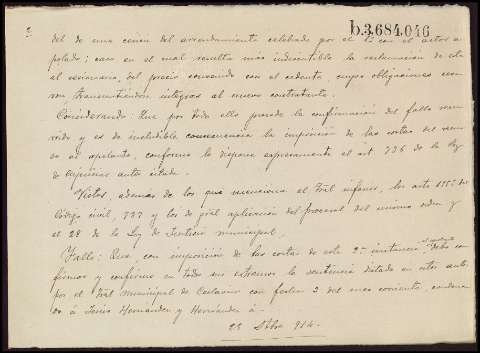 b.3.684.046
del de una cesión del arrendamiento celebrado por el
polado; caso en el cual resulta más indiscutible la reclamación de este
al cesionario, del precio convenido con el cedente, cuyas obligaciones
transmitiéndose íntegras al nuevo contratante.
Considerando: Que por todo ello procede la confirmación del fallo recu
rrido y es de ineludible consecuencia la imposición de las costas del recur
so al apelante, conforme lo dispone expresamente el art 736 de la ley
de trámites antes citada.
Vistos, además de los que menciona el Tral inferior, los arts del
Código civil, y los de gral aplicación del procesal del mismo orden y
el 28 de la Ley de Justicia municipal.
Fallo: Que, con imposición de las costas de esta 2ª instancia debo con
firmar y confirmo en todos sus extremos la sentencia dictada en estos autos
por el Tral municipal de con fecha 3 del mes corriente, condenan
do á Hernández y Hernández á.
25 Stbre 914.